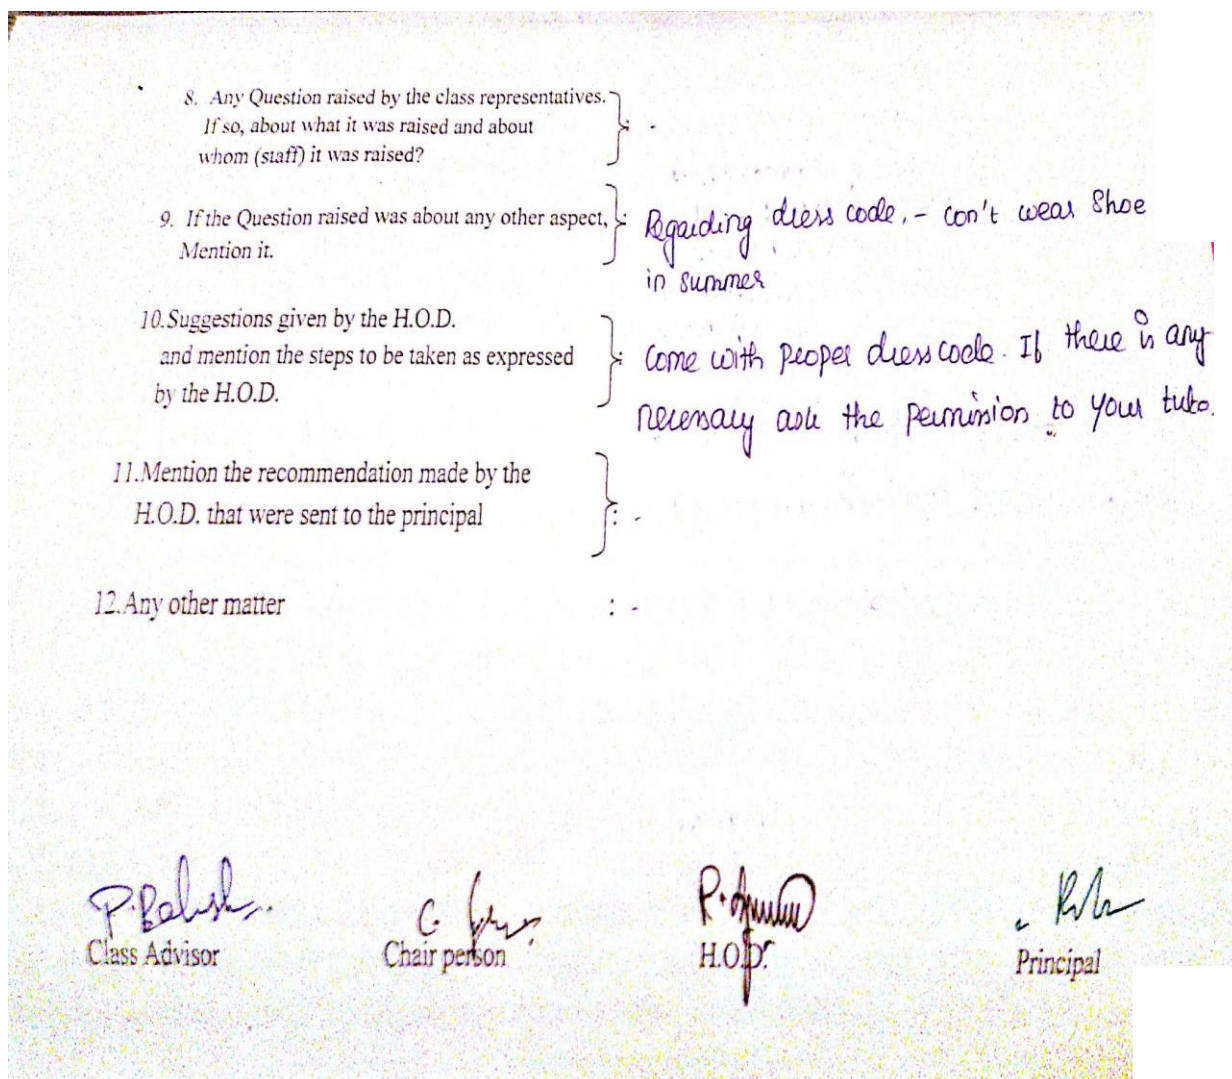 8. Any Question raised by the class representatives.
If so, about what it was raised and about : -
whom (staff) it was raised?
9. If the Question raised was about any other aspect, : Regarding dress code. - con't wear Shoe
Mention it.
in summer
10.Suggestions given by the H.O.D.
and mention the steps to be taken as expressed : Come with proper dress code. If there is any
by the H.O.D.
necessary ask the permission to your tuto.
11.Mention the recommendation made by the
H.O.D. that were sent to the principal : -
12.Any other matter : -
P.
C.
P.
Class Advisor Chair person H.O.D. Principal